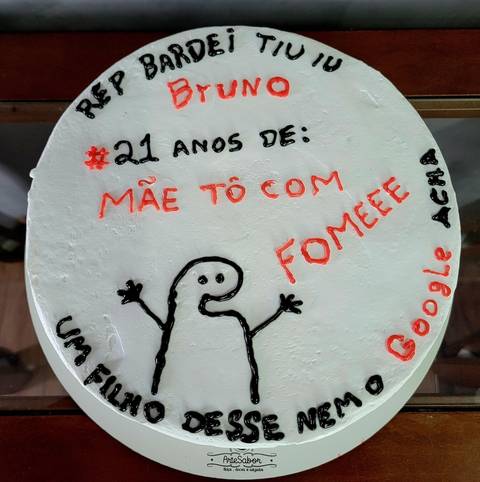 REP BARDEi TIU IU
BrUNO
#21 ANOS DE:
MÃE TÔ COM
FOMEEE
UM FILHO DESSE NEM O Google ACHA
ArteSabor